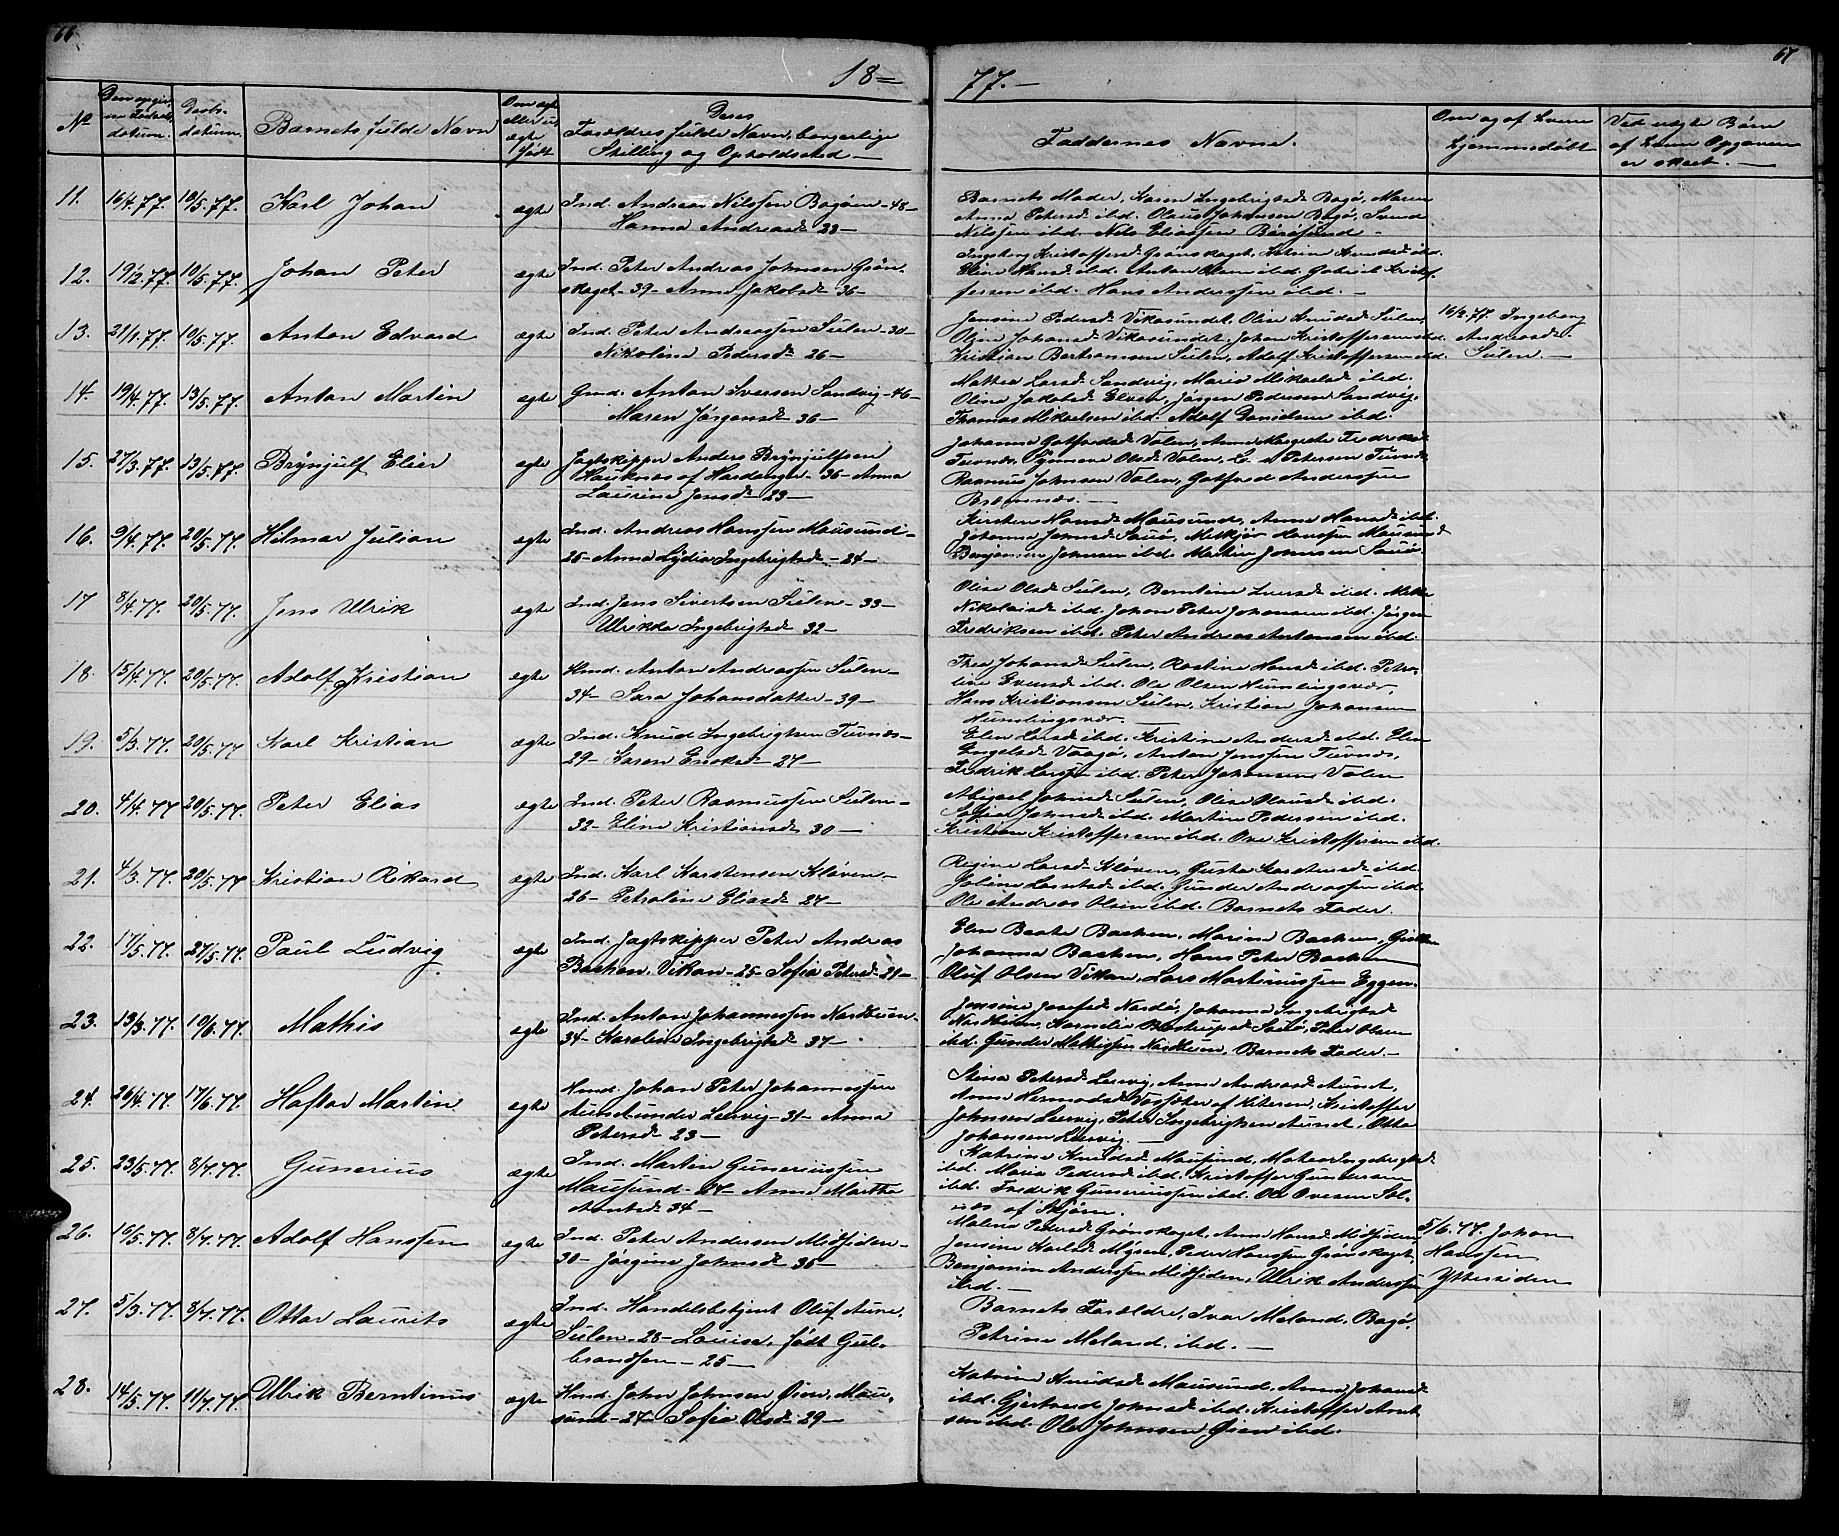 66
67
18=
77.-
No
datum.
Daabs-
datum.
Barnets fulde Navn
Om ægte
eller u-
ægte
født
Deres
Forældres fulde Navn, borgerlige
Stilling og Opholdssted -
Faddernes Navne.
Om og af hvem
hjemmedøbt
Ved uægte Børn
af hvem Opgaven
er skeet. -
11. 16/4.77. 10/5.77. Karl Johan ægte Ind. Andreas Nilssen Bogøen - 48 -
Hanna Andreasd. 33 -
Barnets Moder, Karen Ingebrigtsd. Bogø, Maren
Anna Petersd. ibd. Olaus Johansen Bogø,
Nilssen ibd. Nils Eliassen
12. 19/2.77. 10/5.77. Johan Peter ægte Ind. Peter Andreas Johnsen Grøn-
skaget - 39 - Anna Jakobsd. 36 -
Ingeborg Kristoffersd. Grønskaget,
Eline Hansd. ibd. Anton Olsen ibd. Gabriel Kristof-
fersen ibd. Hans Anderssen ibd. -
13. 21/1.77. 10/5.77. Anton Edvard ægte Ind. Peter Andreassen Sulen - 30 -
Nikoline Pedersd. 26 -
Jensine Pedersd. Vikasundet, Olise Knudsd. Sulen,
Oline Johansd. Vikasundet, Johan Kristoffersen ibd.
Kristian Berntsen Sulen, Adolf Kristoffersen ibd.
16/2.77. Ingeborg
Andreasd.
Sulen. -
14. 19/4.77. 13/5.77. Anton Martin ægte Gmd. Anton Iversen Sandvig - 46 -
Maren Jørgensd. 36 -
Mathea Larsd. Sandvig, Maria Mikaelsd. ibd.
Oline Jakobsd. Elven, Jørgen Pedersen Sandvig,
Thomas Mikkelsen ibd. Adolf Danielsen ibd.
15. 27/3.77. 13/5.77. Brynjulf Elier ægte Jagtskipper Anders Brynjulfsen
Hauknæs af Hardanger - 36 - Anna
Laurine Jensd. 23 -
Johanna Gotfredsd. Valen, Anne Margrete Fredriksd.
Tuvnæs, Synneva Olsd. Valen, Petersen Tuvnæs
Rasmus Johnsen Valen, Gotfred Anderssen
Bremnæs. -
16. 9/4.77. 20/5.77. Hilmar Julian ægte Ind. Andreas Hanssen Mausund -
25 - Anna Lydia Ingebrigtsd. - 24 -
Kirsten Hansd. Mausund, Anne Hansd. ibd.
Johanna Johnsd. Melkjør Hanssen Mausund
Benjamin Johnsen ibd. Martin Johnsen
17 8/4.77. 20/5.77. Jens Ulrik ægte Ind. Jens Sivertsen Sulen - 33 -
Ulrikke Ingebrigtsd. 32 -
Olise Olsd. Sulen, Berntine Iversd. ibd. Mette
Nikolaisd. ibd. Johan Peter Johansen ibd. Jørgen
Fredriksen ibd. Peter Andreas Antonsen ibd.
18. 15/4.77. 20/5.77. Adolf Kristian ægte Hmd. Anton Andreassen Sulen -
34 - Sara Johansdatter - 39 -
Thea Johansd. Sulen, Rastine Hansd. ibd. Petro-
line Evensd. ibd. Ole Olsen Humlingsvær,
Hans Kristiansen Sulen, Kristian Johansen
Humlingsvær. -
19. 5/3.77. 20/5.77 Karl Kristian ægte Ind. Knud Ingebrigtsen Tuvnæs -
29 - Karen Enoksd. - 27 -
Elen Larsd. ibd. Kristine Andersd. ibd. Elen
Engelsd. Vaagø, Anton Jenssen Tuvnæs,
Fredrik Larssen ibd. Peter Johansen Valen
20. 4/4.77 20/5.77. Peter Elias ægte Ind. Peter Rasmussen Sulen -
32 - Eline Kristiansd. 30 -
Abigael Johnsd. Sulen, Olise Olausd. ibd.
Sofia Johnsd. ibd. Martin Pedersen ibd.
Kristian Kristoffersen ibd. Ove Kristoffersen ibd.
21. 4/3.77. 20/5.77 Kristian Rikard ægte Ind. Karl Karstensen Kløven -
26 - Petroline Eliasd. - 27 -
Regine Larsd. Kløven, Gusta Karstensd. ibd.
Joline Larsd. ibd. Gunder Andreassen ibd.
Ole Andreas Olsen ibd. Barnets Fader.
22. 17/5.77. 27/5.77. Paul Ludvig ægte Ind. Jagtskipper Peter Andreas
Bachen, Vikan - 25 - Sofia Petersd. - 21 -
Elen Beate Bachen, Marine Bachen,
Johanna Bachen, Hans Peter Bachen
Oluf Olsen Vikan, Lars Martinussen Eggen.
23. 13/3.77. 10/6.77. Mathis ægte Ind. Anton Johannessen Nordbuen -
34 - Karoline Ingebrigtsd. 37 -
Jensine Josefsd. Nordø, Johanna Ingebrigtsd.
Peter Olsen
ibd. Gunder Mathissen Nordbuen, Barnets Fader. -
24. 26/4.77. 17/6.77. Haftor Martin ægte Hmd. Johan Peter Johannessen
Aunet under Leervig - 31 - Anna
Petersd. 23 -
Stina Petersd. Leervig, Anne Andreasd. Aunet,
af Hiteren, Kristoffer
Johnsen Leervig, Peter Ingebrigtsen Aunet, Otto
Johansen Leervig. -
25. 23/5.77. 8/7.77. Gunerius ægte Ind. Martin Guneriussen
Mausund - 27 - Anne Martha
34 -
Katrine Knudsd. Mausund, Mathea Ingebrigtsd.
ibd. Maria Pedersd. ibd. Kristoffer Gundersen
ibd. Fredrik Guneriussen ibd. Ole Ovesen
af Stjørn.
26. 16/5.77. 8/7.77. Adolf Hanssen ægte Ind. Peter Andersen Midsiden -
30 - Jørgine Johnsd. 36 -
Malena Pedersd. Grønskaget, Anne Hansd. Midsiden,
Jensine Karlsd. Myren, Peder Hanssen Grønskaget,
Benjamin Anderssen Midsiden, Ulrik Anderssen
ibd. -
5/6.77. Johan
Hanssen
Yttersiden
27. 5/3.77. 8/7.77. Ottar Laurits ægte Ind. Handelsbetjent Oluf Aune,
Sulen - 28 - Louise, født Gul-
brandsen - 25 -
Barnets Forældre, Ivar Meland, Bogø,
Petrine Meland, ibd. -
28. 14/5.77. 11/7.77. Ulrik Berntinus ægte Hmd. John Johnsen Øien, Mau-
sund - 27 - Sofia Olsd. 29 -
Katrine Knudsd. Mausund, Anne Johansd.
ibd. Gjertrud Johnsd. ibd. Kristoffer
sen ibd. Ole Johnsen Øien ibd.